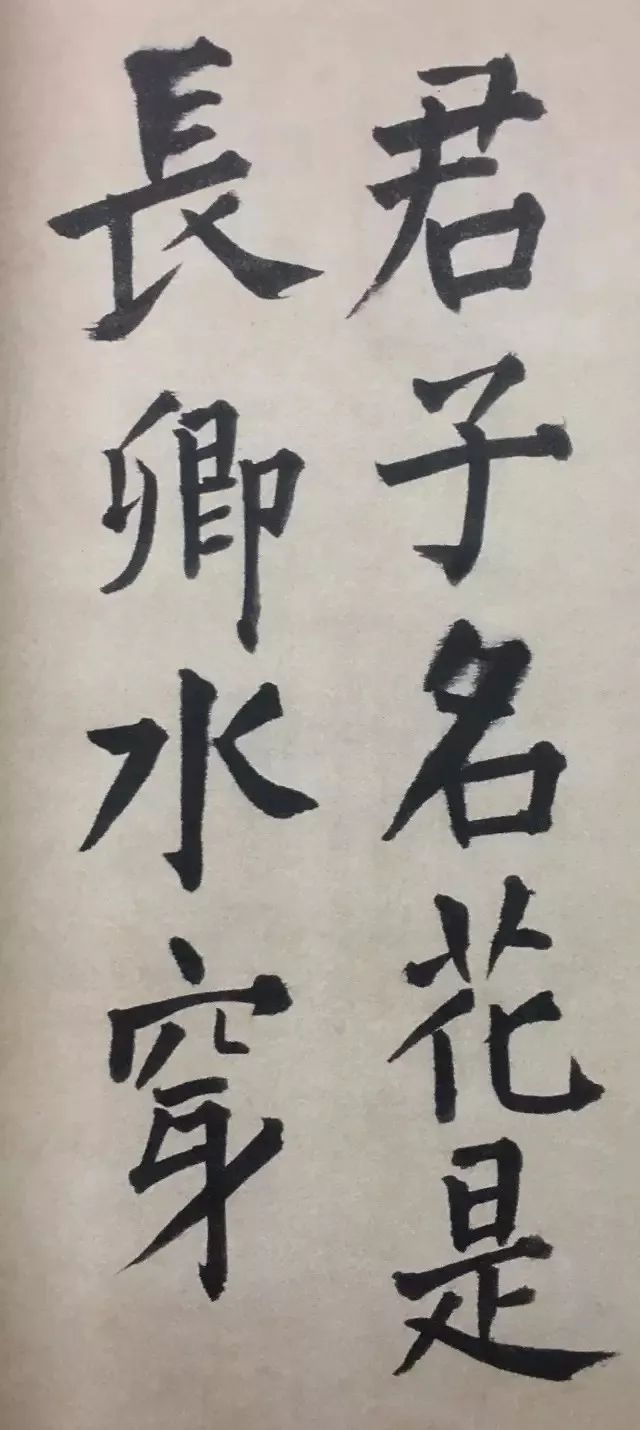 君子名花是
長卿水穿